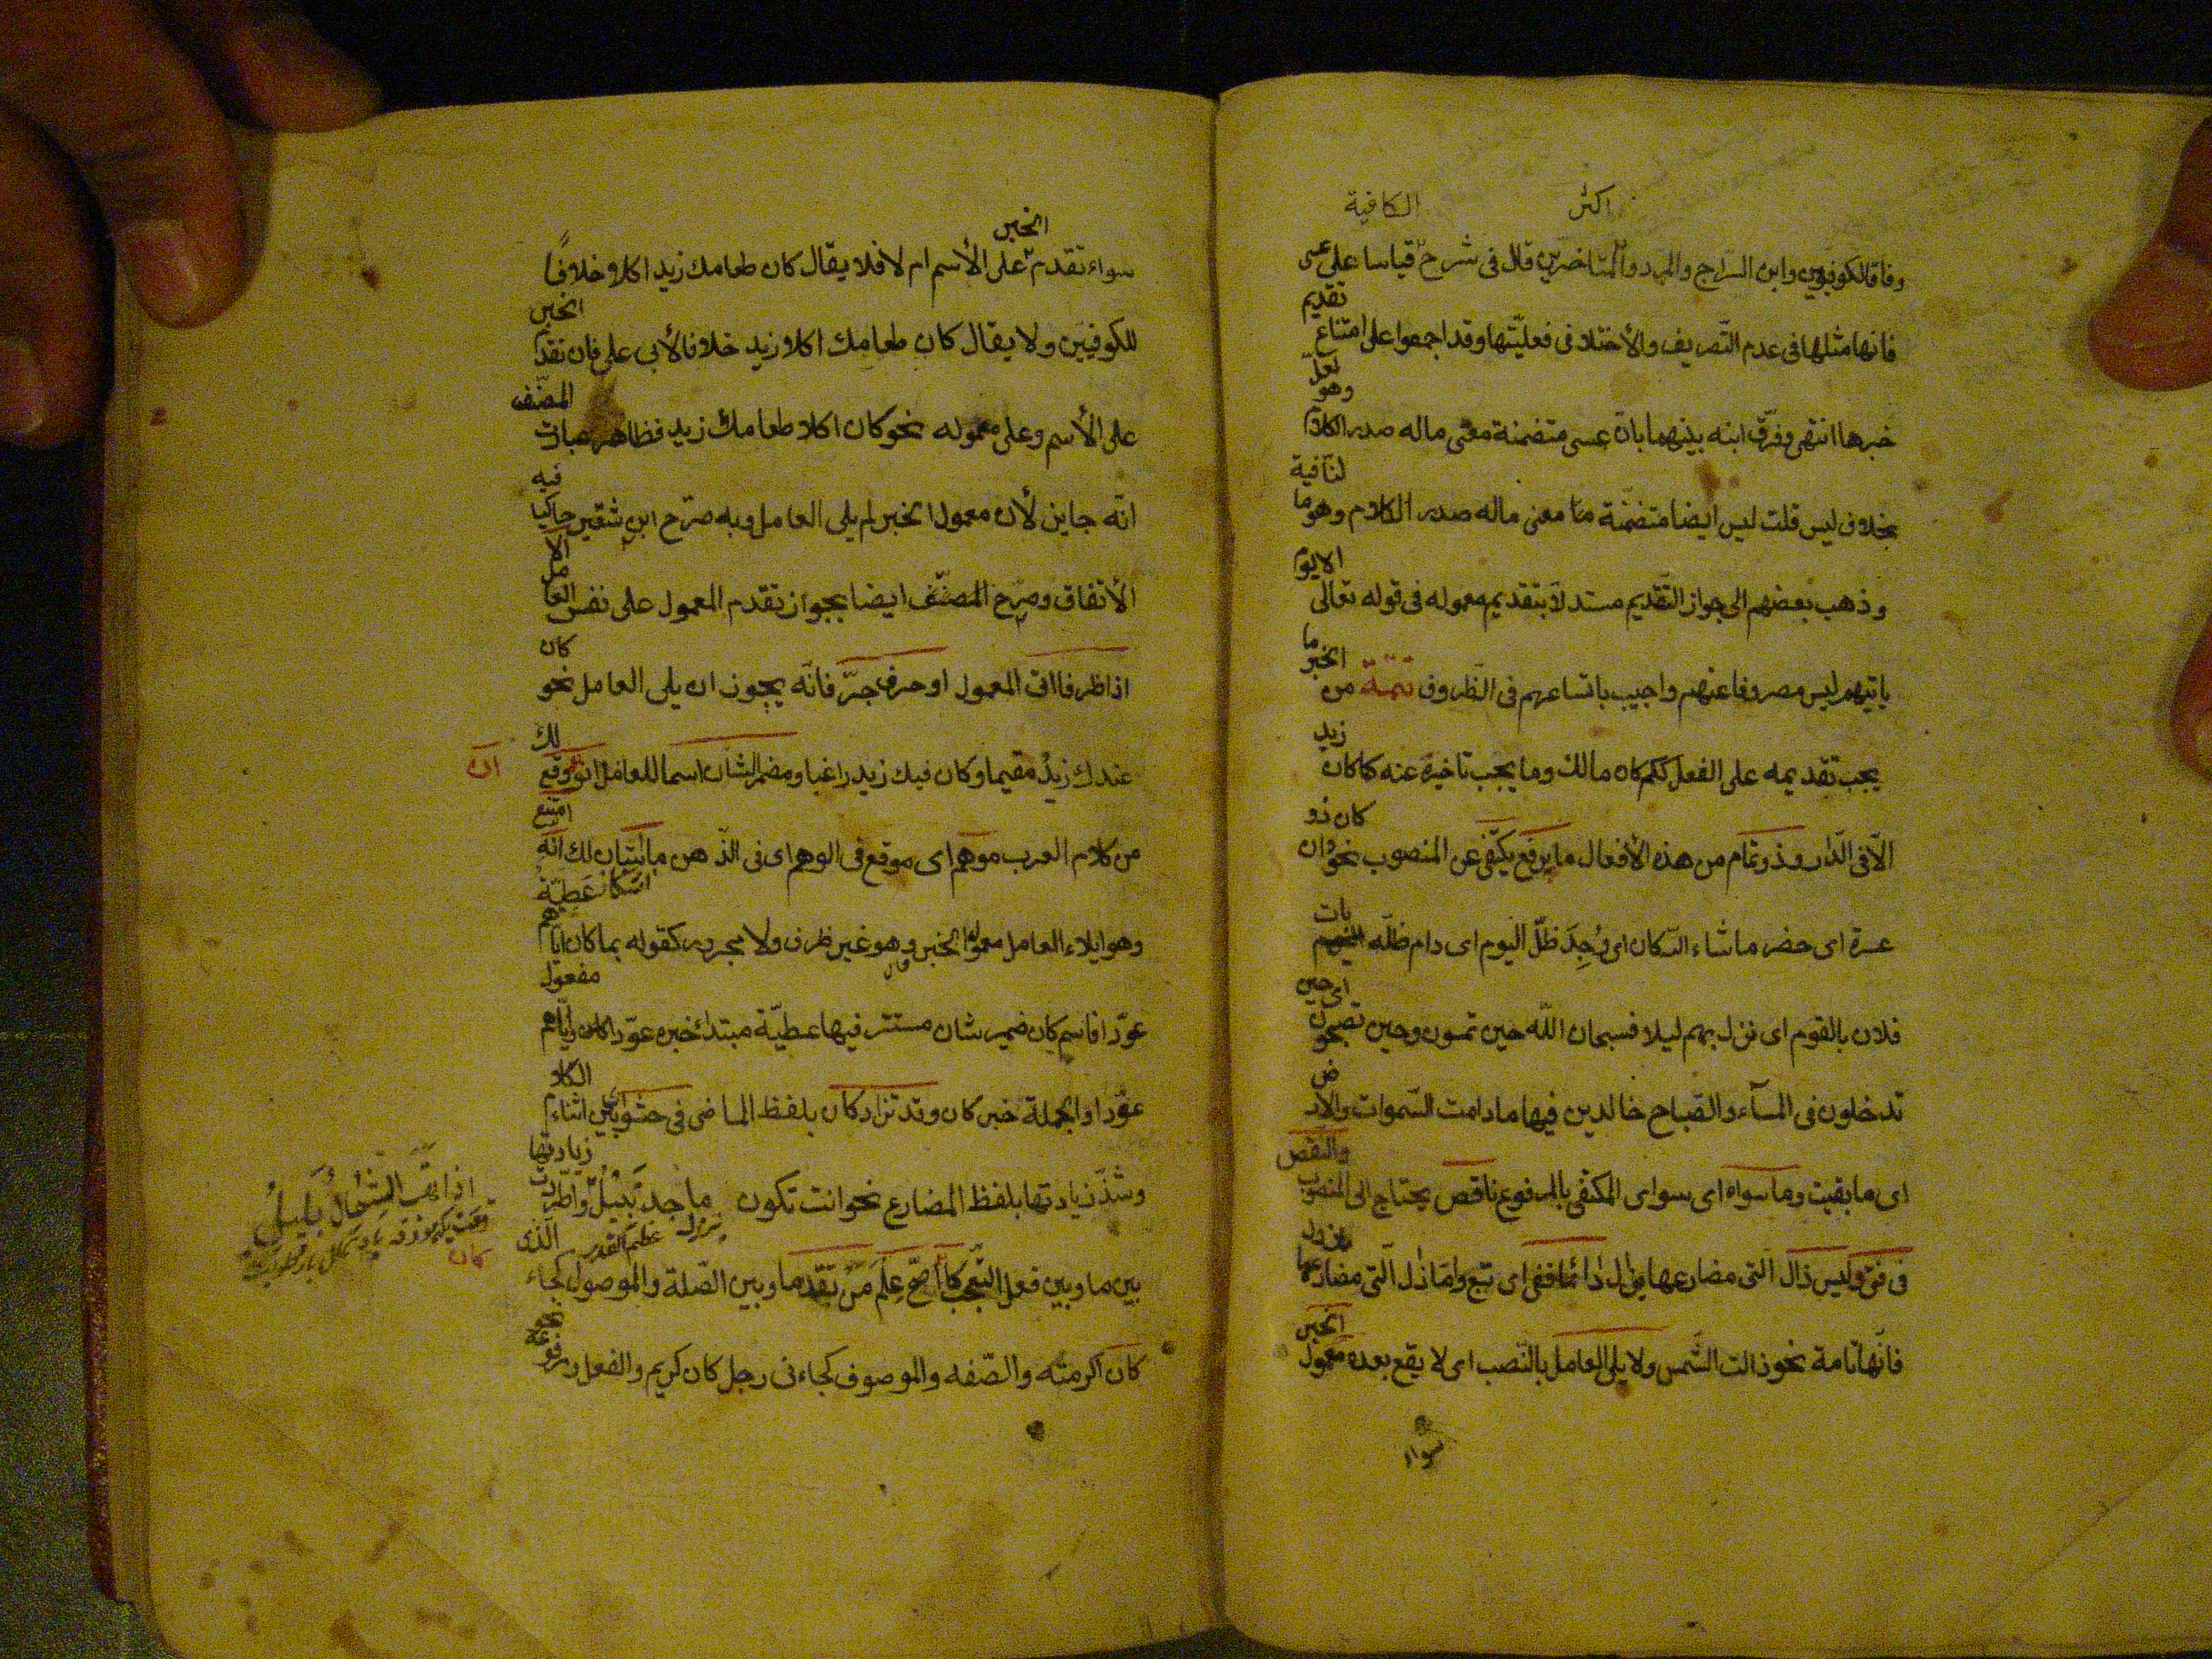 اكثر الكافية
وفاقا لكوفيين وابن السراج والمبرد والمتاخرين قال فى شرح قياسا على عسى
فانها مثلها فى عدم التصريف والأختلاف فى فعليتها وقد اجمعوا على امتناع تقديم
خبرها انتهى وفرق ابنه بينهما بان عسى متضمنة معنى ماله صدر الكلام وهو لعل
بخلاف ليس قلت ليس ايضا متضمنة معنى ماله صدر الكلام وهو ما لنافية
وذهب بعضهم الى جواز التقديم مستدلا بتقديم معموله فى قوله تعالى الا يوم
ياتيهم ليس مصروفا عنهم واجيب باتساعهم فى الظروف تتمة من الخبر ما
يجب تقديمه على الفعل ككم كان مالك وما يجب تاخيره عنه كما كان زيد
الا فى الدار وذو تمام من هذه الأفعال ما برفع يكتفى عن المنصوب نحو وان كان ذو
عسرة اى حضر ما شاء الله كان اى وُجِدَ ظلّ اليوم اى دام ظله بات
فلان بالقوم اى نزل بهم ليلا فسبحان الله حين تمسون وحين تصبحون اى حين
تدخلون فى المسآء والصباح خالدين فيها ما دامت السموات والارض
اى ما بقيت وما سواه اى سواى المكتفى بالمرفوع ناقص يحتاج الى المنصوب والنقص
فى فتئ وليس زال التى مضارعها يزال دائما قفى اى تبع واما زال التى مضارعها يزول
فانها تامة نحو زالت الشمس ولا يلى العامل بالنصب اى لا يقع بعده معمول الخبر
سواء
سواء تقدم الخبر على الأسم ام لا فلا يقال كان طعامك زيد اكلا وخلافًا
للكوفيين ولا يقال كان طعامك اكلا زيد خلافا لأبى على فان تقدم الخبر
على الأسم وعلى معموله نحو كان اكلا طعامك زيد فظاهر عبارت المصنف
انه جايز لأن معمول الخبر لم يلى العامل وبه صرح ابن شقير حاكيا فيه
الأتفاق وصرح المصنف ايضا بجواز تقدم المعمول على نفس العامل الا
اذا ظرفا اتى المعمول او حرف جرّ فانه يجوز ان يلى العامل نحو كان
عندك زيدٌ مقيما وكان فيك زيد راغبا ومضمر الشان اسما للعامل انو ان وقع لك
من كلام العرب موهم اى موقع فى الوهم اى فى الذهن ما استبان لك انه امتنع
وهو ايلاء العامل معمول الخبر وهو غير ظرف ولا مجرور كقوله بما كان اياهم عطية
عوّدا فاسم كان ضمير شان مستتر فيها عطية مبتدأ خبره عوّدا واياهم مفعول
عوّدا والجملة خبر كان وقد تزاد كان بلفظ الماضى فى حشو اى بين اثناء الكلام
وشذ زيادتها بلفظ المضارع نحو انت تكون ماجد نبيل واطردت زيادتها
بين ما وبين فعل التعجب كما كان اصح علم من تقدما وبين الصلة والموصول كجاء الذى
كان اكرمته والصفه والموصوف كجاءنى رجل كان كريم والفعل ومرفوعه نحو
اذا تهب الشمال بليل
كان